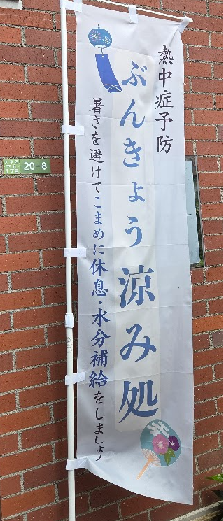 熱中症予防
ぶんきょう涼み処
暑さを避けてこまめに休息・水分補給をしましょう
20 8